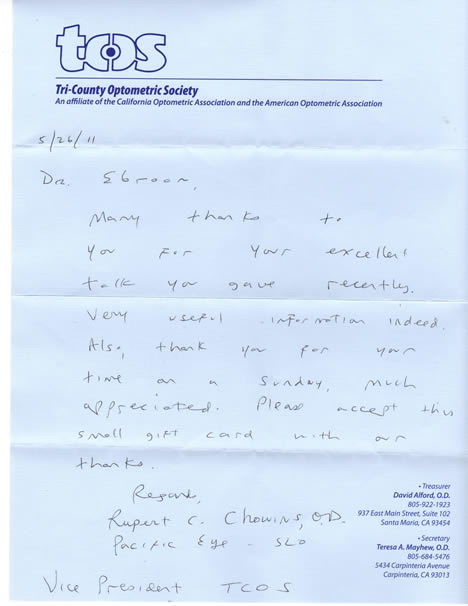 tcos
Tri-County Optometric Society
An affiliate of the California Optometric Association and the American Optometric Association
5/26/11
Dr. Ebroon,
Many thanks to
you for your excellent
talk you gave recently.
Very useful information indeed.
Also, thank you for your
time on a Sunday, much
appreciated. Please accept this
small gift card with our
thanks.
Regards,
Rupert C. Chowins, O.D.
Pacific Eye - SLO
Vice President TCOS
• Treasurer
David Alford, O.D.
805-922-1923
937 East Main Street, Suite 102
Santa Maria, CA 93454
• Secretary
Teresa A. Mayhew, O.D.
805-684-5476
5434 Carpinteria Avenue
Carpinteria, CA 93013